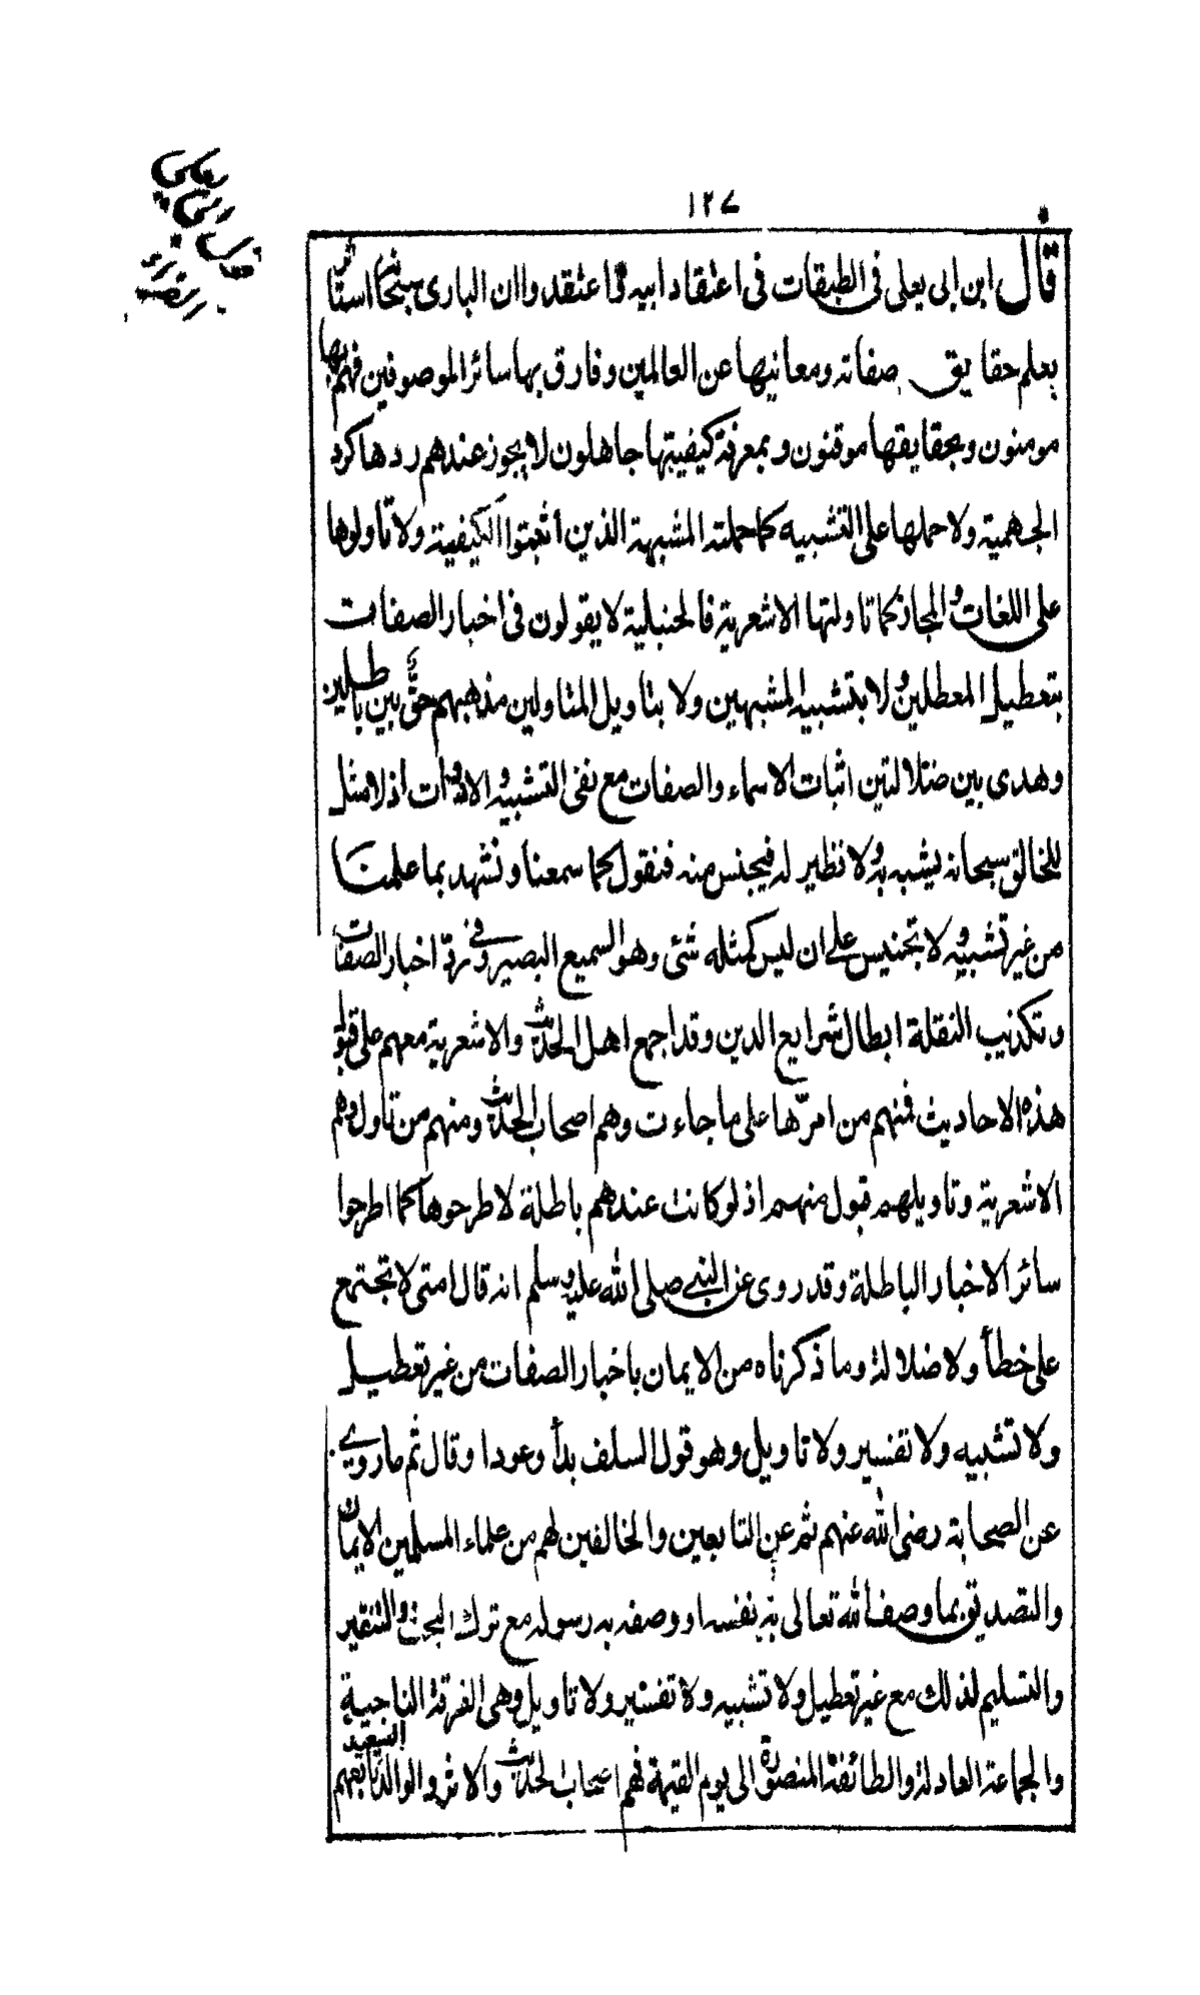 ١٢٧
قول
ابي يعلى
الفراء
قال ابن ابى يعلى فى الطبقات فى اعتقاد ابيه قال اعتقدوا ان البارى سبحانه استاثر
بعلم حقايق صفاته ومعانيها عن العالمين وفارق بها سائر الموصوفين فهم بها
مومنون وبحقايقها موقنون وبمعرفة كيفيتها جاهلون لا يجوز عندهم ردها كرد
الجهمية ولا حملها على التشبيه كما حملته المشبهة الذين أثبتوا الكيفية ولا تاولوها
على اللغات والمجاز كما تاولتها الاشعرية فالحنبلية لا يقولون فى اخبار الصفات
بتعطيل المعطلين ولا بتشبيه المشبهين ولا بتاويل المتاولين مذهبهم حق بين باطلين
وهدى بين ضلالتين اثبات الاسماء والصفات مع نفى التشبيه والادوات اذ لا مثل
للخالق سبحانه يشبهه ولا نظير له فيجنس منه فنقول كما سمعنا ونشهد بما علمنا
من غير تشبيه ولا تجنيس على ان ليس كمثله شئى وهو السميع البصير وفى رد اخبار الصفات
وتكذيب النقلة ابطال شرايع الدين وقد اجمع اهل الحديث والاشعرية معهم على قبول
هذه الاحاديث فمنهم من امرّها على ما جاءت وهم اصحاب الحديث ومنهم من تاول وهم
الاشعرية وتاويلهم قبول منهم اذ لو كانت عندهم باطلة لاطرحوها كما اطرحوا
سائر الاخبار الباطلة وقد روى عن النبى صلى الله عليه وسلم انه قال امتى لا تجتمع
على خطأ ولا ضلالة وما ذكرناه من الايمان باخبار الصفات من غير تعطيل
ولا تشبيه ولا تفسير ولا تاويل وهو قول السلف بدأ وعودا وقال ثم ماروى
عن الصحابة رضى الله عنهم ثم عن التابعين والخالفين لهم من علماء المسلمين الايمان
والتصديق بما وصف الله تعالى به نفسه او وصفه به رسوله مع ترك البحث والتنقير
والتسليم لذلك مع غير تعطيل ولا تشبيه ولا تفسير ولا تاويل وهى الفرقة الناجية
والجماعة العادلة والطائفة المنصورة الى يوم القيمة فهم اصحاب الحديث والاثر والوالد السعيد تابعهم